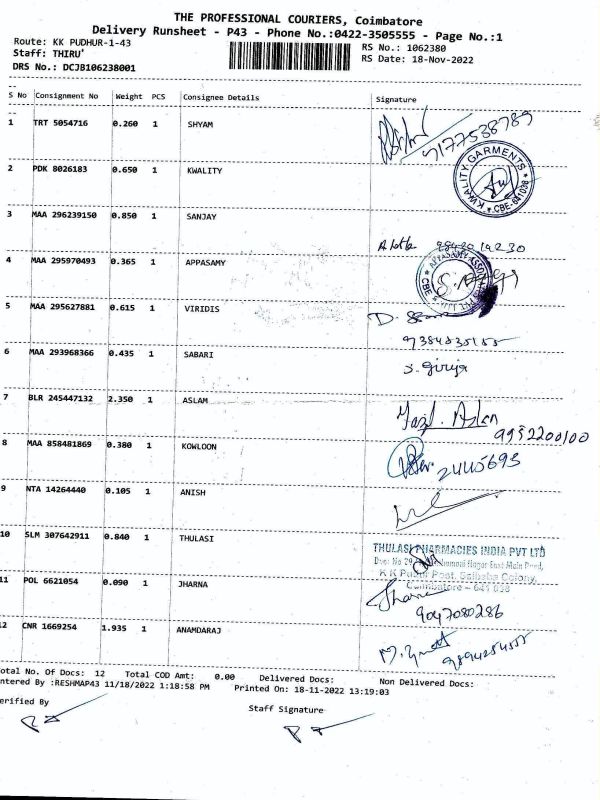 THE PROFESSIONAL COURIERS, Coimbatore
Delivery Runsheet - P43 - Phone No.:0422-3505555 - Page No.:1
Route: KK PUDHUR-1-43
Staff: THIRU
DRS No.: DCJB106238001
RS No.: 1062380
RS Date: 18-Nov-2022
S No Consignment No Weight PCS Consignee Details Signature
1 TRT 5054716 0.260 1 SHYAM
9177538789
2 PDK 8026183 0.650 1 KWALITY
KWALITY GARMENTS
CBE-641038
3 MAA 296239150 0.850 1 SANJAY
4 MAA 295970493 0.365 1 APPASAMY
CBE
5 MAA 295627881 0.615 1 VIRIDIS
D.
6 MAA 293968366 0.435 1 SABARI
S. girija
7 BLR 245447132 2.350 1 ASLAM
9952200100
8 MAA 858481869 0.380 1 KOWLOON
2445693
9 NTA 14264440 0.105 1 ANISH
10 SLM 307642911 0.840 1 THULASI
THULASI PHARMACIES INDIA PVT LTD
K K Pudur Post, Saibaba Colony,
Coimbatore - 641 038
11 POL 6621054 0.090 1 JHARNA
Jharna
9047080286
12 CNR 1669254 1.935 1 ANAMDARAJ
otal No. Of Docs: 12 Total COD Amt: 0.00 Delivered Docs: Non Delivered Docs:
ntered By :RESHMAP43 11/18/2022 1:18:58 PM Printed On: 18-11-2022 13:19:03
erified By
Staff Signature